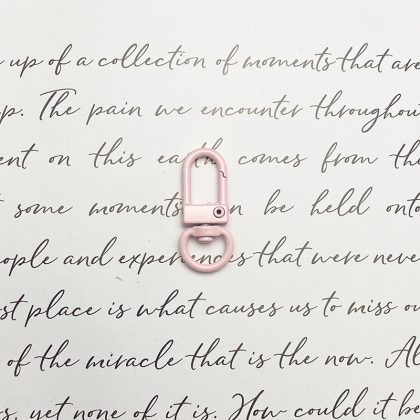 up of a collection of moments that are
up. The pain we encounter throughout
ent on this earth comes from the
some moments can be held onto
ople and experiences that were never
st place is what causes us to miss ou
of the miracle that is the now. Al
s, yet none of it is. How could it be